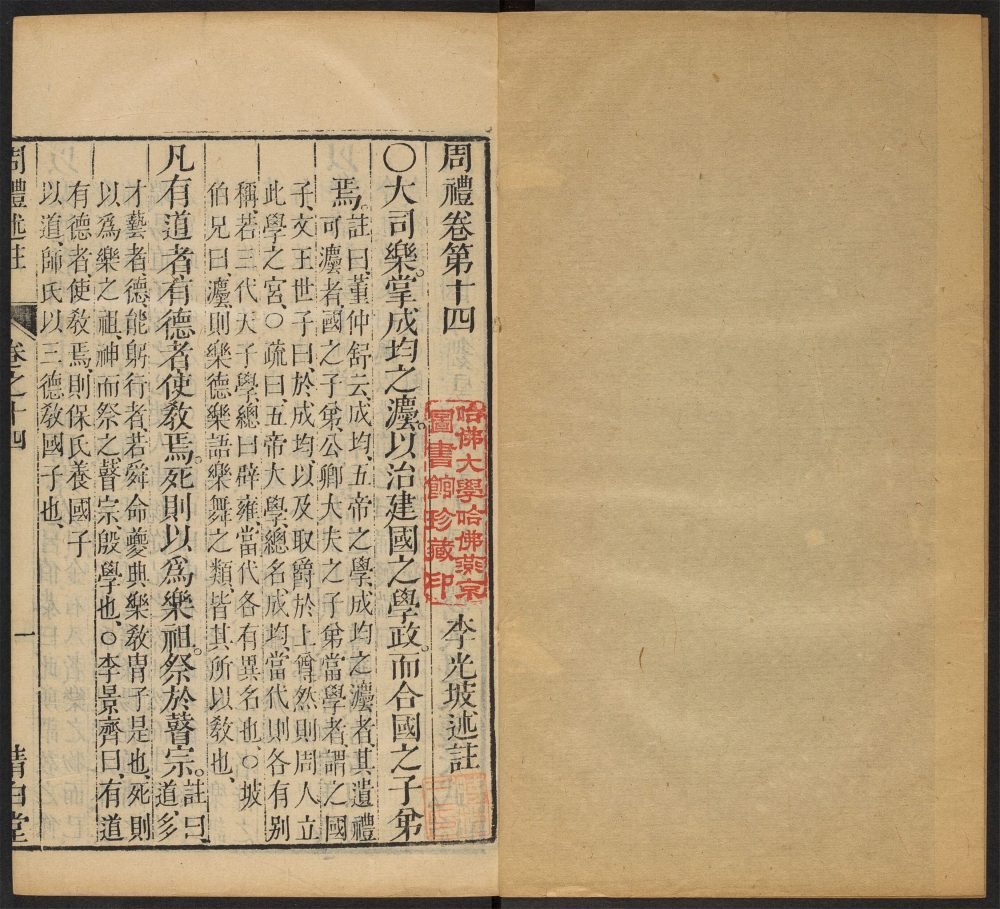 周禮卷第十四
李光坡述註
哈佛大學哈佛燕京
圖書館珍藏印
○大司樂。掌成均之灋。以治建國之學政。而合國之子弟
焉。註曰、董仲舒云、成均、五帝之學、成均之灋者、其遺禮
可灋者、國之子弟、公卿大夫之子弟當學者、謂之國
子、文王世子曰、於成均以及取爵於上尊、然則周人立
此學之宮、○疏曰、五帝大學、總名成均、當代則各有別
稱、若三代天子學、總曰辟雍、當代各有異名也、○坡
伯兄曰、灋則樂德樂語樂舞之類、皆其所以敎也、
凡有道者、有德者、使敎焉。死則以爲樂祖。祭於瞽宗。註曰、道、多
才藝者、德、能躬行者、若舜命夔典樂敎胄子是也、死則
以爲樂之祖、神而祭之、瞽宗、殷學也、○李景齊曰、有道
有德者、使敎焉、則保氏養國子
以道、師氏以三德敎國子也、
周禮述註
卷之十四
一
清白堂